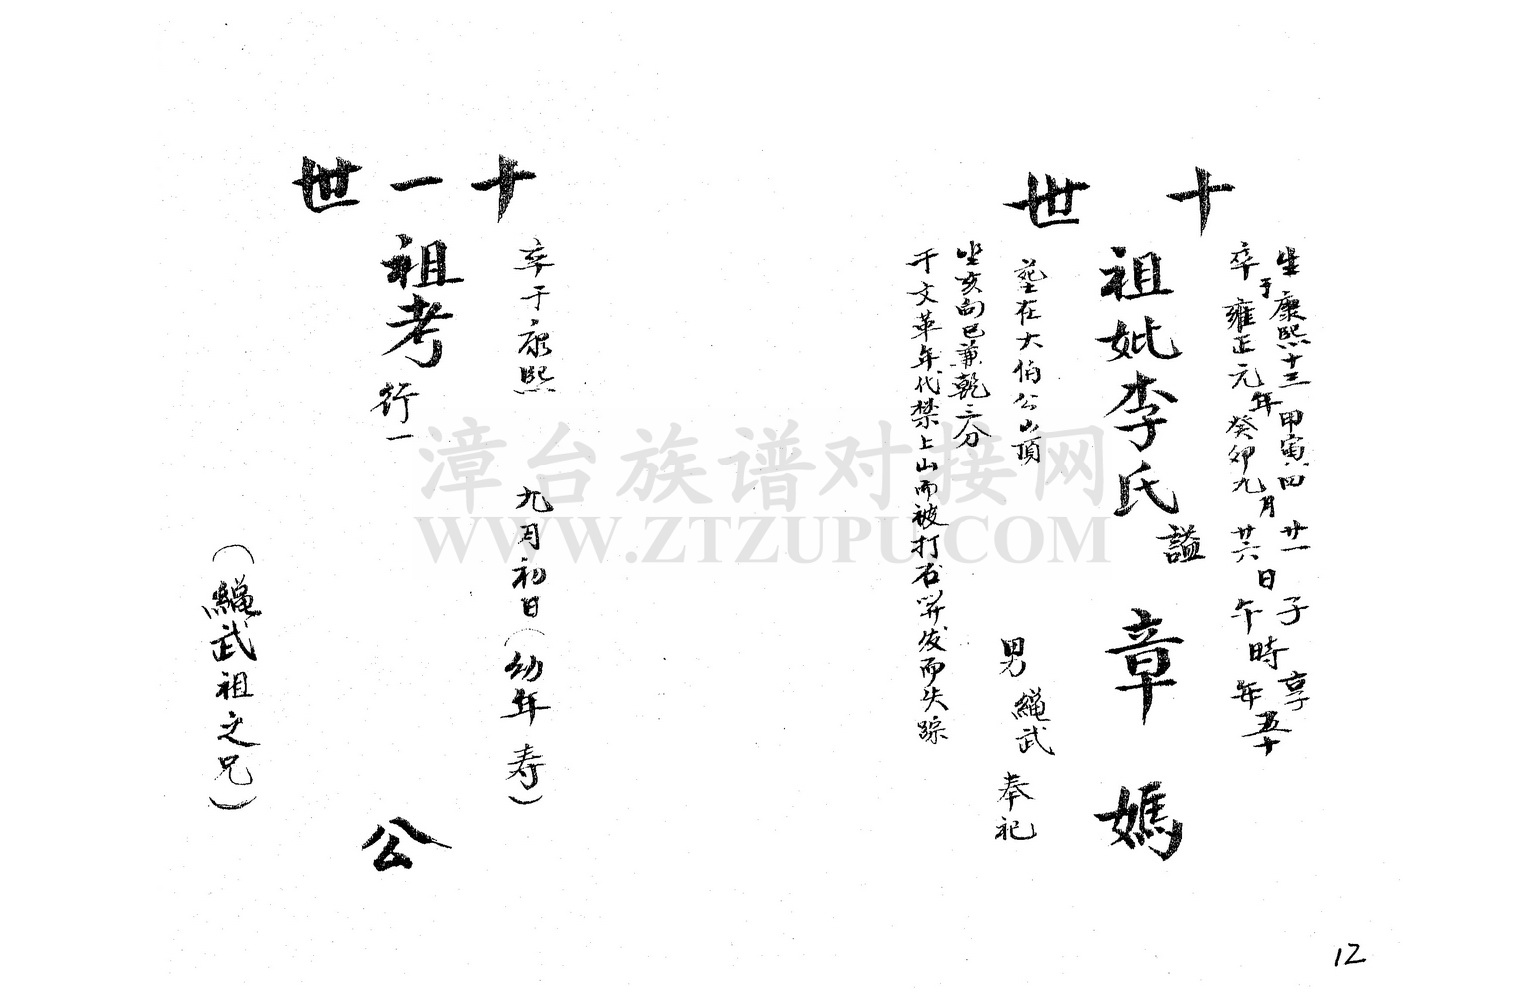 十世
生康熙十三甲寅四廿一子享
卒于雍正元年癸卯九月廿六日午時年五十
祖妣李氏謚章媽
墓在大伯公山頂 男繩武奉祀
坐亥向巳兼乾三分
于文革年代禁上山而被打石开发而失踪
十一世
卒于康熙 九月初日（幼年寿）
祖考行一 公
（繩武祖之兄）
漳台族谱对接网
WWW.ZTZUPU.COM
12